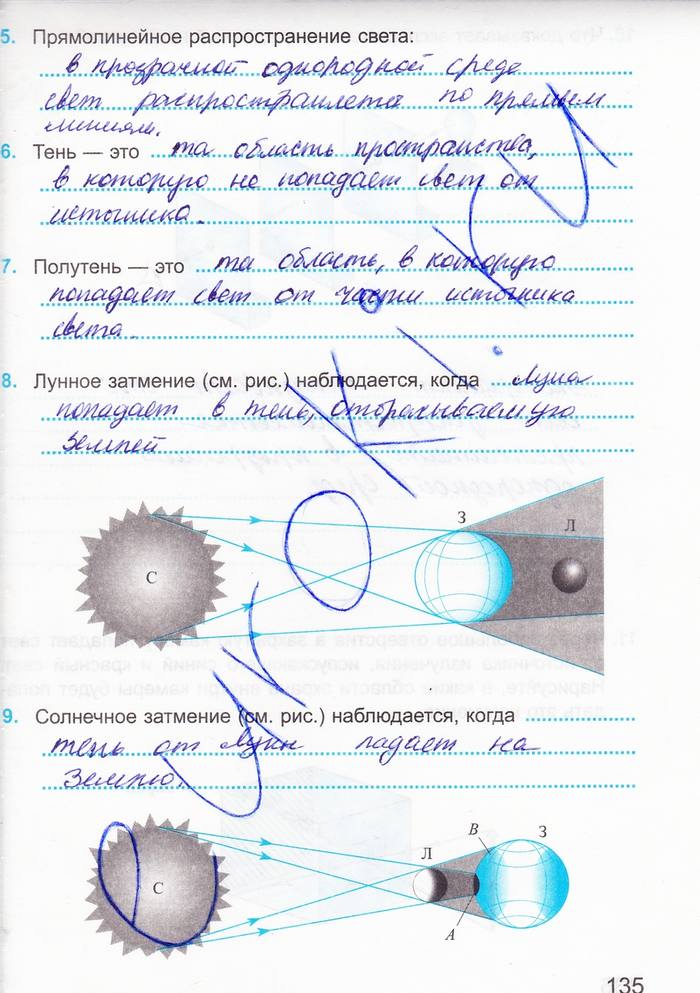 5. Прямолинейное распространение света:
в прозрачной однородной среде
свет распространяется по прямым
линиям.
6. Тень — это та область пространства,
в которую не попадает свет от
источника.
7. Полутень — это та область, в которую
попадает свет от части источника
света.
8. Лунное затмение (см. рис.) наблюдается, когда Луна
попадает в тень, отбрасываемую
Землей
З
Л
С
9. Солнечное затмение (см. рис.) наблюдается, когда
тень от Луны падает на
Землю.
В
Л
З
С
А
135